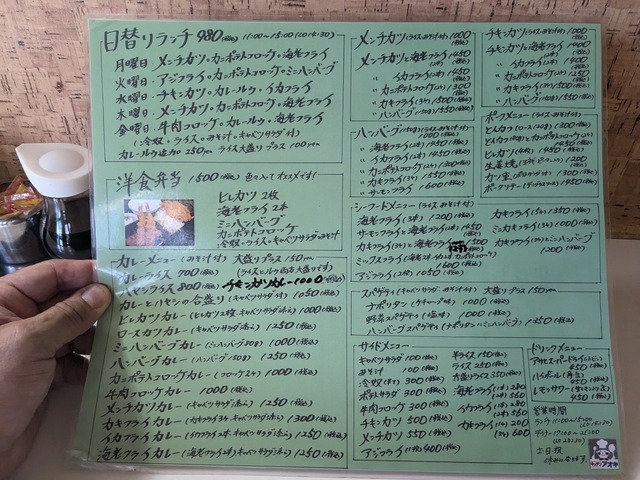 日替りランチ 980(税込) 11:00〜15:00(LO14:30)
月曜日・メンチカツ・カニポテトコロッケ・海老フライ
火曜日・アジフライ・カニポテトコロッケ・ミニハンバーグ
水曜日・チキンカツ・カレールゥ・イカフライ
木曜日・メンチカツ・カニポテトコロッケ・海老フライ
金曜日・牛肉コロッケ・カレールゥ・海老フライ
(冷奴・ライス・みそ汁・キャベツサラダ付)
カレールゥ追加の250yen ライス大盛り プラス100yen
洋食弁当 1500(税込)
ヒレカツ 2枚
海老フライ 2本
ミニハンバーグ
カニポテトコロッケ
冷奴・ライス・キャベツサラダ・みそ汁
カレーメニュー(みそ汁付) 大盛り プラス150yen
カレーライス 700(税込)
ハヤシライス 800(税込) チキンカツカレー1000(税込)
カレーとハヤシの合盛り(キャベツサラダ付) 1050(税込)
ヒレカツカレー(ヒレカツ2枚・キャベツサラダ添え) 1000(税込)
ロースカツカレー(キャベツサラダ添え) 1250(税込)
ミニハンバーグカレー 1000(税込)
ハンバーグカレー 1250(税込)
カニポテトコロッケカレー 1000(税込)
牛肉コロッケカレー 1000(税込)
メンチカツカレー(キャベツサラダ添え) 1250(税込)
カキフライカレー(カキフライ3ケ・キャベツサラダ添え) 1300(税込)
イカフライカレー(イカフライ2本・キャベツサラダ添え) 1250(税込)
海老フライカレー(海老フライ2本・キャベツサラダ添え) 1250(税込)
メンチカツ(ライス・みそ汁付) 1000(税込)
メンチカツと海老フライ 1450(税込)
〃 イカフライ 1450
〃 カニポテトコロッケ 1300
〃 カキフライ 1500
〃 ハンバーグ 1550
ハンバーグ(ライス・みそ汁付)
〃 海老フライ 1450
〃 イカフライ(2本) 1450
〃 カニポテトコロッケ 1300
〃 カキフライ 1550
〃 サーモンフライ 1600
シーフードメニュー(ライス・みそ汁付)
海老フライ(3本) 1200(税込)
サーモンフライと海老フライ 1450
カキフライ(3ケ)と海老フライ 1500
ミックスフライ
1600(税込)
アジフライ(2枚) 1050(税込)
カキフライ(5ケ) 1350(税込)
イカフライ(3本) 1000(税込)
カキフライ(3ケ)とミニハンバーグ
1200(税込)
スパゲティ(キャベツサラダ・みそ汁付) 大盛り プラス150yen
ナポリタン(ケチャップ味) 1000(税込)
野菜スパゲティ(塩味) 1000(税込)
ハンバーグスパゲティ(ナポリタンとミニハンバーグ) 1350(税込)
チキンカツ(ライス・みそ汁付) 1000(税込)
チキンカツと海老フライ 1400
〃 イカフライ 1400
〃 カニポテトコロッケ 1250
〃 カキフライ(3ケ) 1500
〃 ハンバーグ 1550
ポークメニュー(ライス・みそ汁付)
とんカツ(ロース) 1300
とんカツ
1450
ヒレカツ(4枚) 1450
生姜焼 1200
カツ皿 1300
ポークソテー 1450
サイドメニュー
キャベツサラダ 100(税込)
みそ汁 100
冷奴 100
ポテトサラダ 300
牛肉コロッケ 300
チキンカツ 500
メンチカツ 550
アジフライ(1枚) 400(税込)
半ライス 150(税込)
ライス 250
大盛ライス 350
海老フライ(1本) 280
(2本) 560
イカフライ(1本) 280
(2本) 560
カキフライ(1ケ) 200
(3ケ) 600
ドリンクメニュー
アサヒスーパードライ
450(税込)
ハイボール
450(税込)
レモンサワー
450(税込)
営業時間
ランチ 11:00〜15:00
(LO14:30)
ディナー 17:00〜
土・日・祝